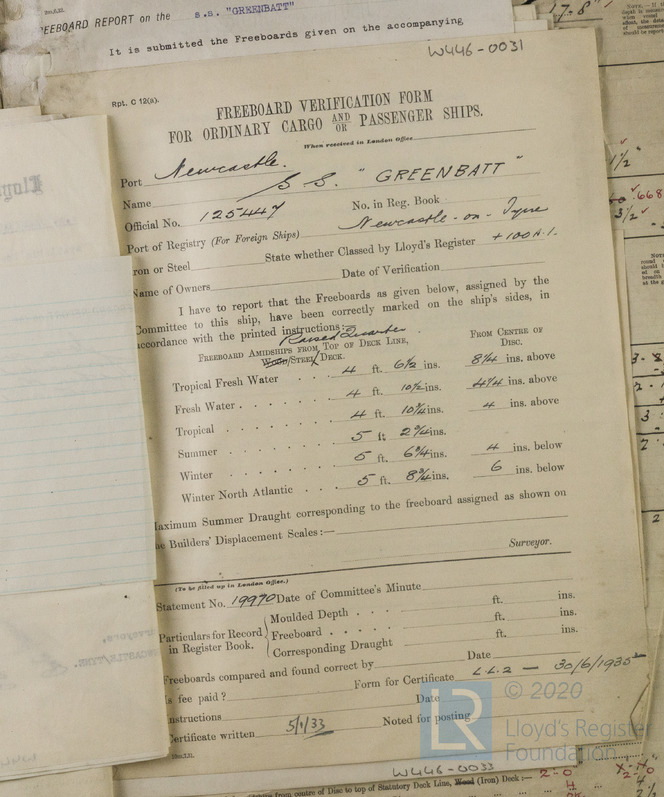 FREEBOARD REPORT on the s.s. "GREENBATT"
It is submitted the Freeboards given on the accompanying
W446-0031
Rpt. C 12(a).
FREEBOARD VERIFICATION FORM
FOR ORDINARY CARGO AND OR PASSENGER SHIPS.
When received in London Office
Port Newcastle.
Name S S. "GREENBATT"
Official No. 125447 No. in Reg. Book
Port of Registry (For Foreign Ships) Newcastle-on-Tyne
Iron or Steel State whether Classed by Lloyd's Register +100A.1.
Name of Owners Date of Verification
I have to report that the Freeboards as given below, assigned by the
Committee to this ship, have been correctly marked on the ship's sides, in
accordance with the printed instructions:
Raised Quarter
FREEBOARD AMIDSHIPS FROM TOP OF DECK LINE, FROM CENTRE OF
WOOD/STEEL/DECK. DISC.
Tropical Fresh Water 4 ft. 6½ ins. 8¼ ins. above
Fresh Water 4 ft. 10½ ins. 4¼ ins. above
Tropical 4 ft. 10¾ ins. 4 ins. above
Summer 5 ft 2¾ ins.
Winter 5 ft. 6¾ ins. 4 ins. below
Winter North Atlantic 5 ft. 8¾ ins. 6 ins. below
Maximum Summer Draught corresponding to the freeboard assigned as shown on
the Builders' Displacement Scales:—
Surveyor.
(To be filled up in London Office.)
Statement No. 19970 Date of Committee's Minute
Particulars for Record in Register Book.
Moulded Depth ft. ins.
Freeboard ft. ins.
Corresponding Draught ft. ins.
Freeboards compared and found correct by Date
Is fee paid? Form for Certificate L.L.2 — 30/6/1935
Instructions Date
Certificate written 5/1/33 Noted for posting
W446-0033
from centre of Disc to top of Statutory Deck Line, Wood (Iron) Deck:— 2-0
© 2020
Lloyd's Register
Foundation
LR
17-8"